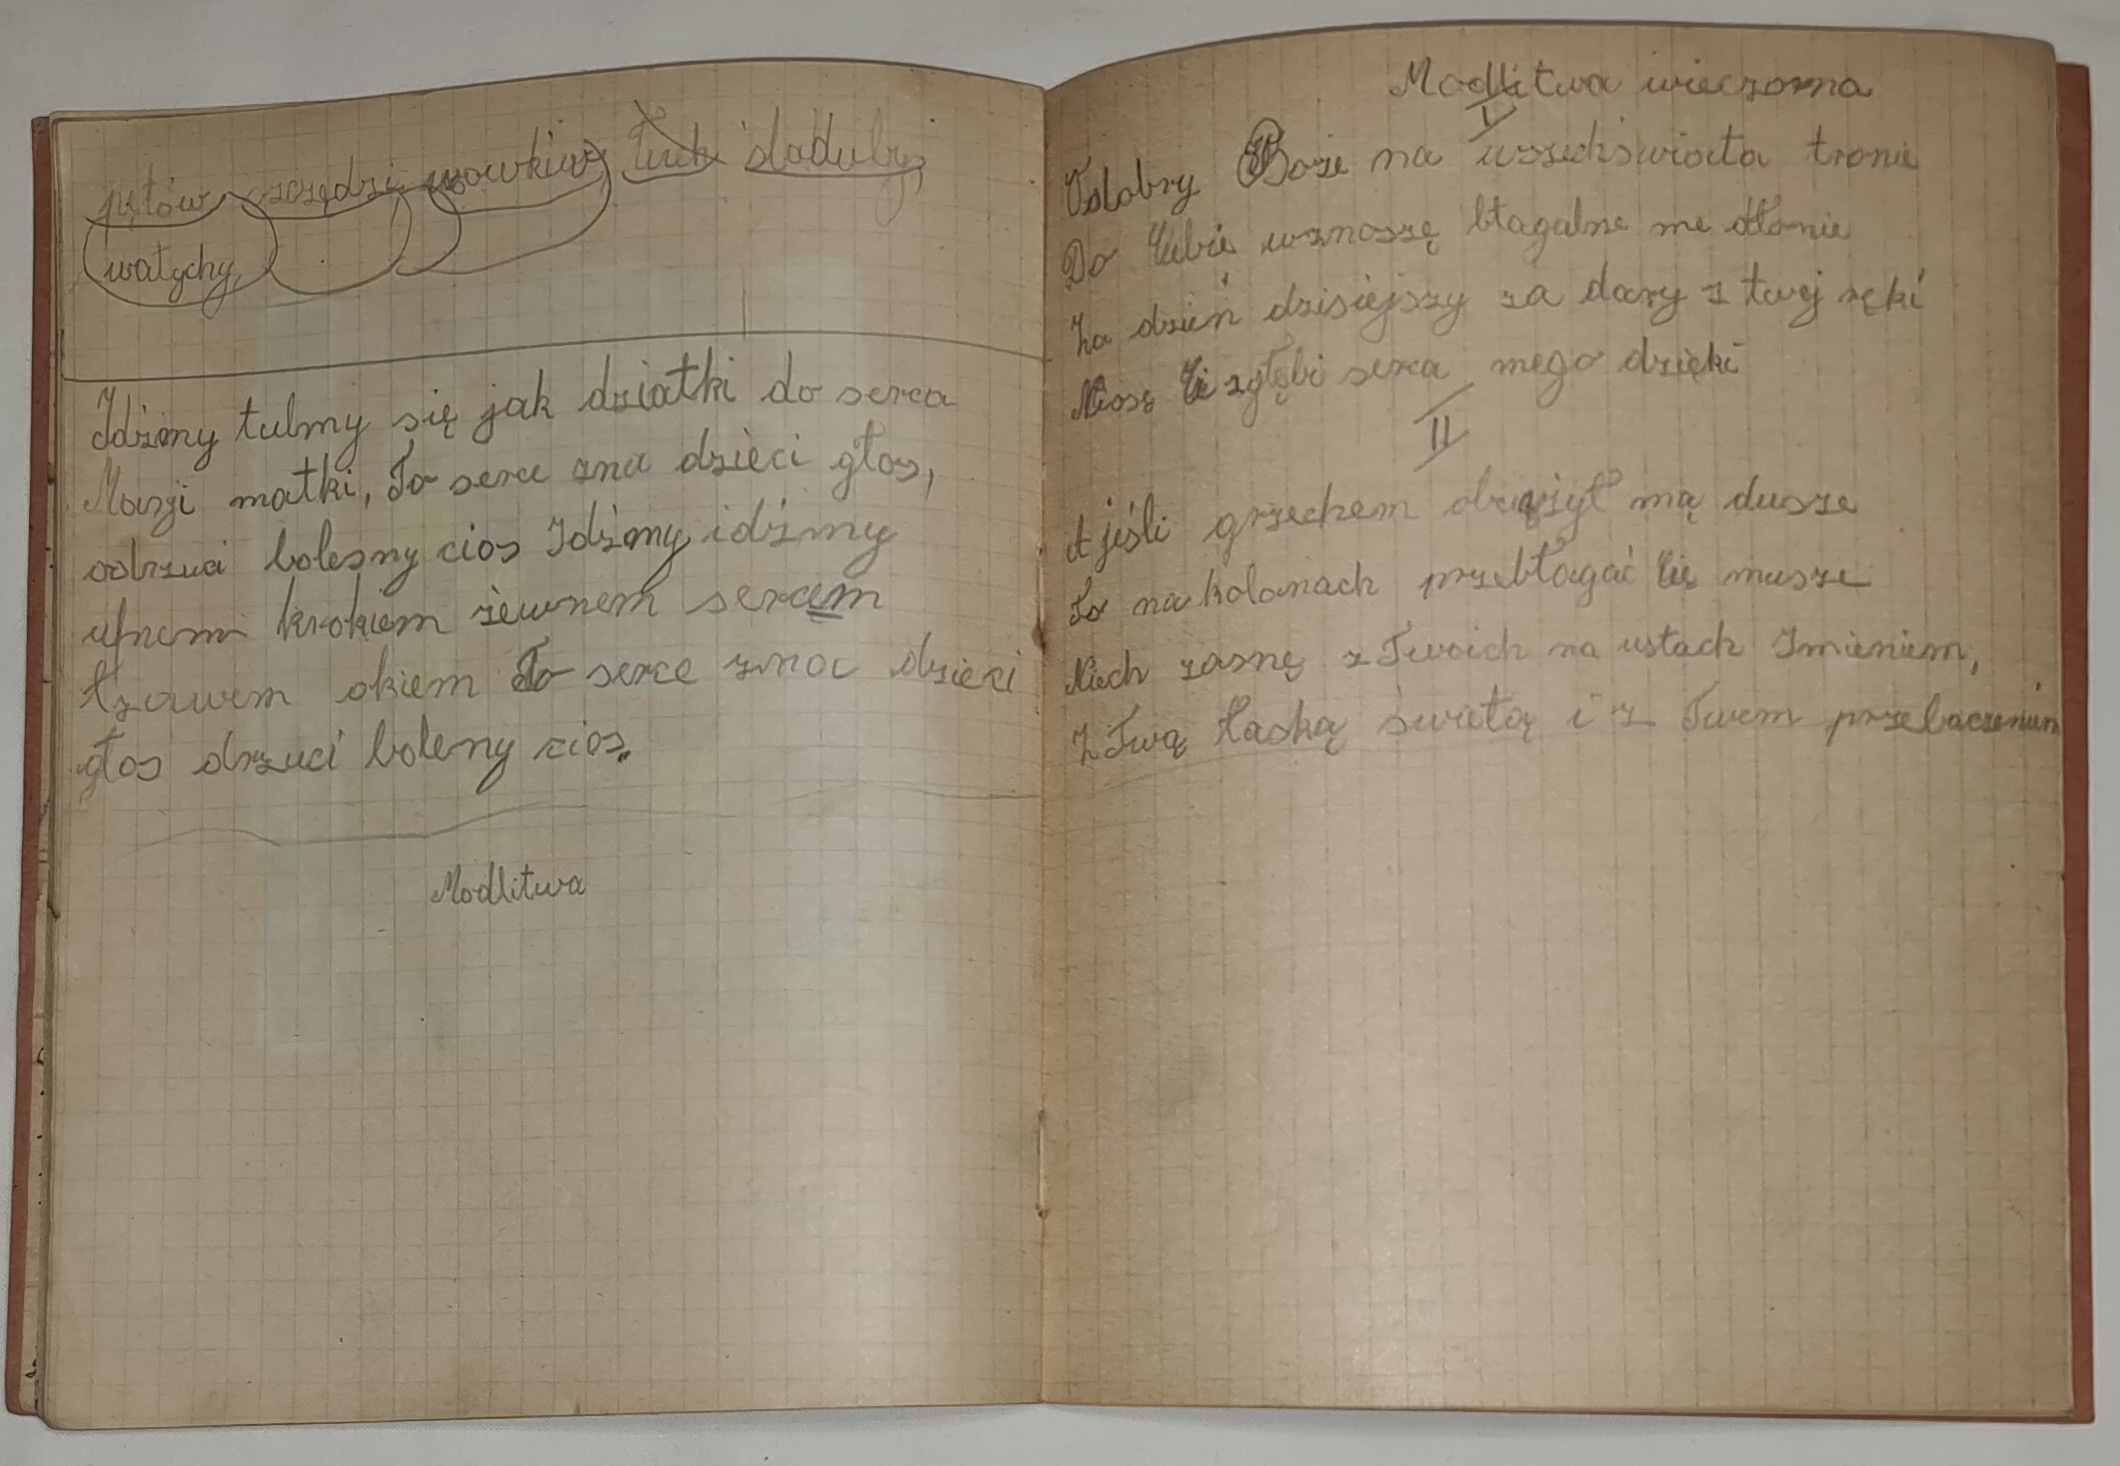 watychy,
Idźmy tulmy się jak dziatki do serca
Maryi matki, To serce zna dzieci głos,
odrzuci bolesny cios Idźmy idźmy
ufnem krokiem rzewnem sercem
łzawem okiem To serce zna dzieci
głos drzuci boleny cios.
Modlitwa
Modlitwa wieczorna
I
dobry Boże na wszechświata tronie
Do Ciebie wznoszę błagalne me dłonie
Za dzień dzisiejszy za dary z twej ręki
Niosę Ci z głębi serca mego dzięki
II
A jeśli grzechem obciążył mą dusze
To na kolanach przebłagać Cię musze
Niech zasnę z Twoich na ustach Imieniem,
Z Twą łaską świetą i z Twem przebaczeniem